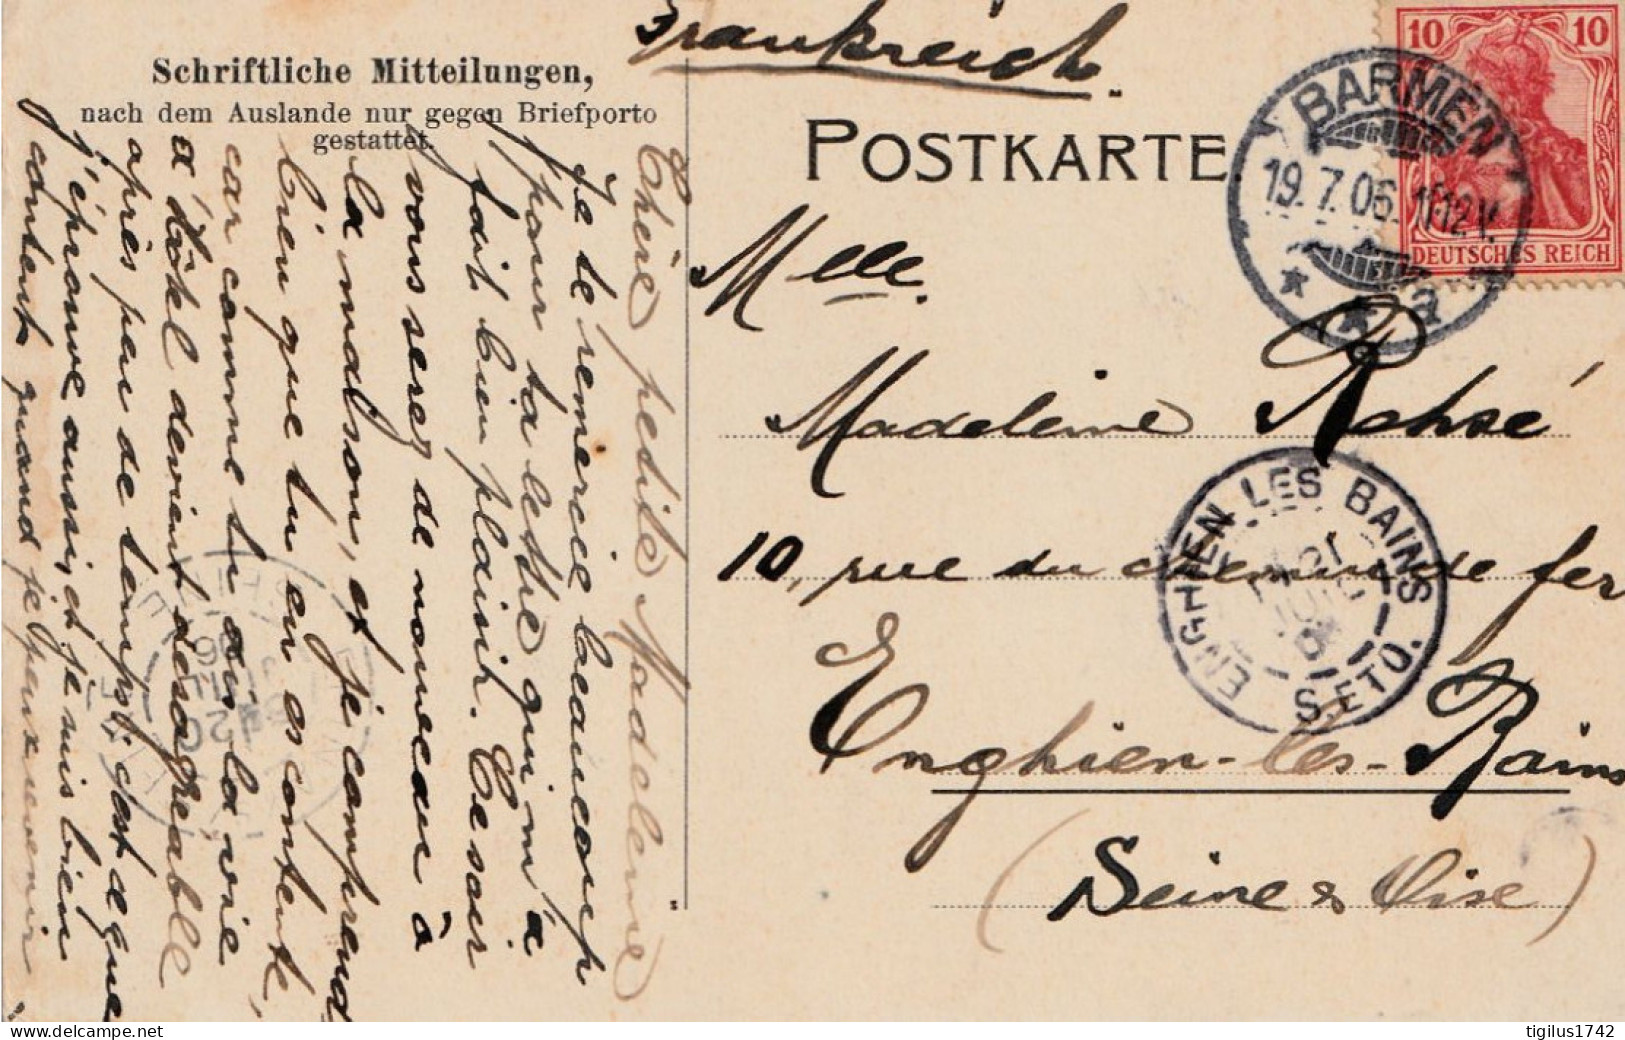 Frankreich.
Schriftliche Mitteilungen,
nach dem Auslande nur gegen Briefporto
gestattet.
POSTKARTE.
10 10
DEUTSCHES REICH
BARMEN
19.7.06. 11-12 V.
Mlle.
Madeleine
10, rue du chemin de fer
Enghien-les-Bains
(Seine & Oise)
ENGHIEN LES BAINS
S. ET O.
Chère petite Madeleine
Je te remercie beaucoup
pour ta lettre qui m'a
fait bien plaisir. Ce soir
vous serez de nouveau à
la maison, et je comprends
bien que tu en es contente,
car comme tu dis la vie
d'hôtel devient désagréable
après peu de temps; c'est ce que
j'éprouve aussi, et je suis bien
content quand je peux revenir
tigilus1742
delcampe.net